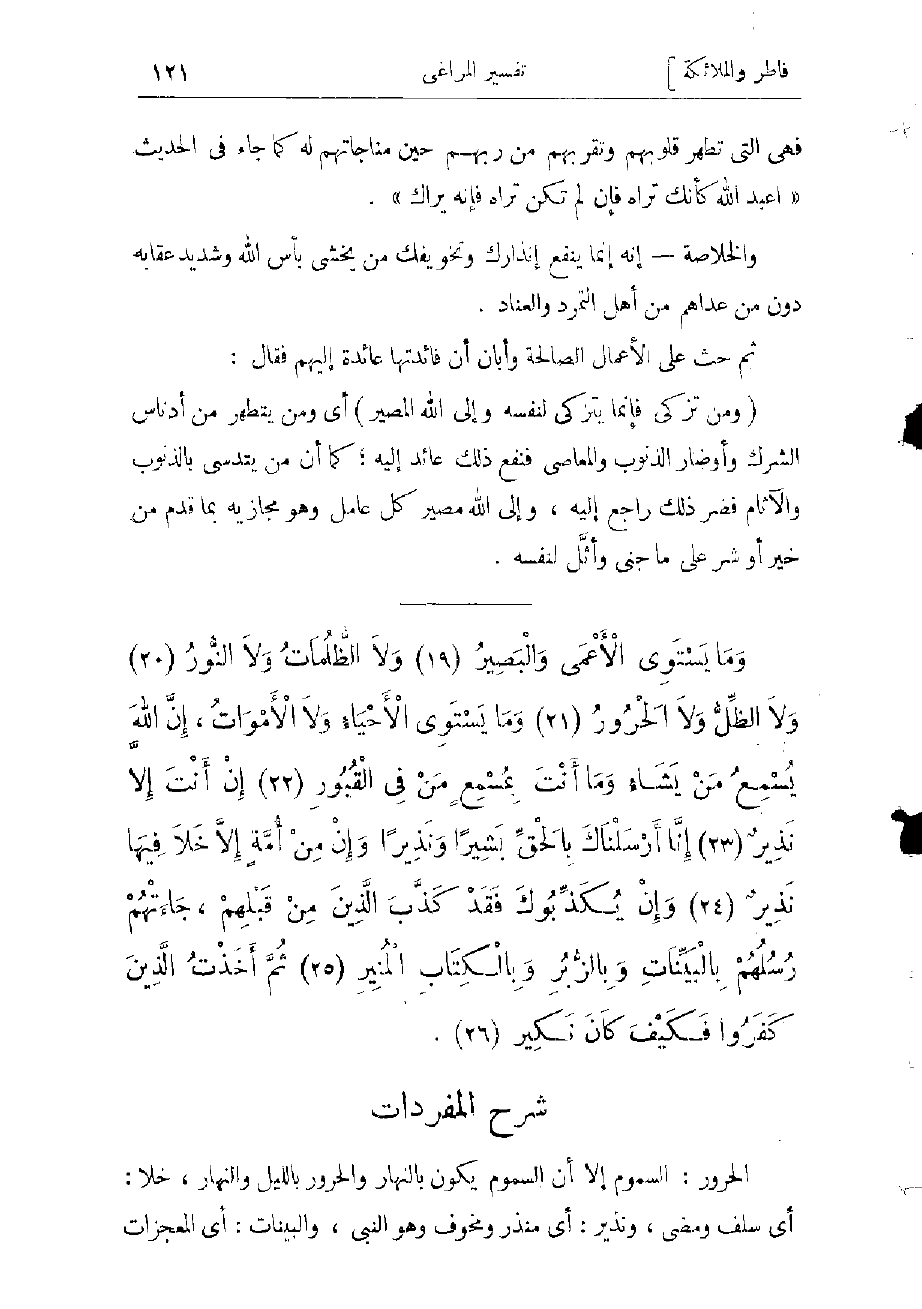 فاطر والملائكة ] تفسير المراغى ١٢١
فهى التى تطهر قلوبهم وتقربهم من ربهم حين مناجاتهم له كما جاء فى الحديث
« اعبد الله كأنك تراه فإن لم تكن تراه فإنه يراك » .
والخلاصة — إنه إنما ينفع إنذارك وتخويفك من يخشى بأس الله وشديد عقابه
دون من عداهم من أهل التمرد والعناد .
ثم حث على الأعمال الصالحة وأبان أن فائدتها عائدة إليهم فقال :
( ومن تزكى فإنما يتزكى لنفسه وإلى الله المصير ) أى ومن يتطهر من أدناس
الشرك وأوضار الذنوب والمعاصى فنفع ذلك عائد إليه ؛ كما أن من يتدسى بالذنوب
والآثام فضر ذلك راجع إليه ، وإلى الله مصير كل عامل وهو مجازيه بما قدم من
خير أو شر على ما جنى وأثَّل لنفسه .
وَمَا يَسْتَوِى الْأَعْمَى وَالْبَصِيرُ (١٩) وَلاَ الظُّلُمَاتُ وَلاَ النُّورُ (٢٠)
وَلاَ الظِّلُّ وَلاَ الْحَرُورُ (٢١) وَمَا يَسْتَوِى الْأَحْيَاءُ وَلاَ الْأَمْوَاتُ ، إِنَّ اللهَ
يُسْمِعُ مَنْ يَشَاءُ وَمَا أَنْتَ بِمُسْمِعٍ مَنْ فِى الْقُبُورِ (٢٢) إِنْ أَنْتَ إِلاَّ
نَذِيرٌ (٢٣) إِنَّا أَرْسَلْنَاكَ بِالْحَقِّ بَشِيرًا وَنَذِيرًا وَإِنْ مِنْ أُمَّةٍ إِلاَّ خَلاَ فِيهَا
نَذِيرٌ (٢٤) وَإِنْ يُكَذِّبُوكَ فَقَدْ كَذَّبَ الَّذِينَ مِنْ قَبْلِهِمْ ، جَاءَتْهُمْ
رُسُلُهُمْ بِالْبَيِّنَاتِ وَبِالزُّبُرِ وَبِالْكِتَابِ الْمُنِيرِ (٢٥) ثُمَّ أَخَذْتُ الَّذِينَ
كَفَرُوا فَكَيْفَ كَانَ نَكِيرِ (٢٦) .
شرح المفردات
الحرور : السموم إلا أن السموم يكون بالنهار والحرور بالليل والنهار ، خلا :
أى سلف ومضى ، ونذير : أى منذر ومخوف وهو النبى ، والبينات : أى المعجزات